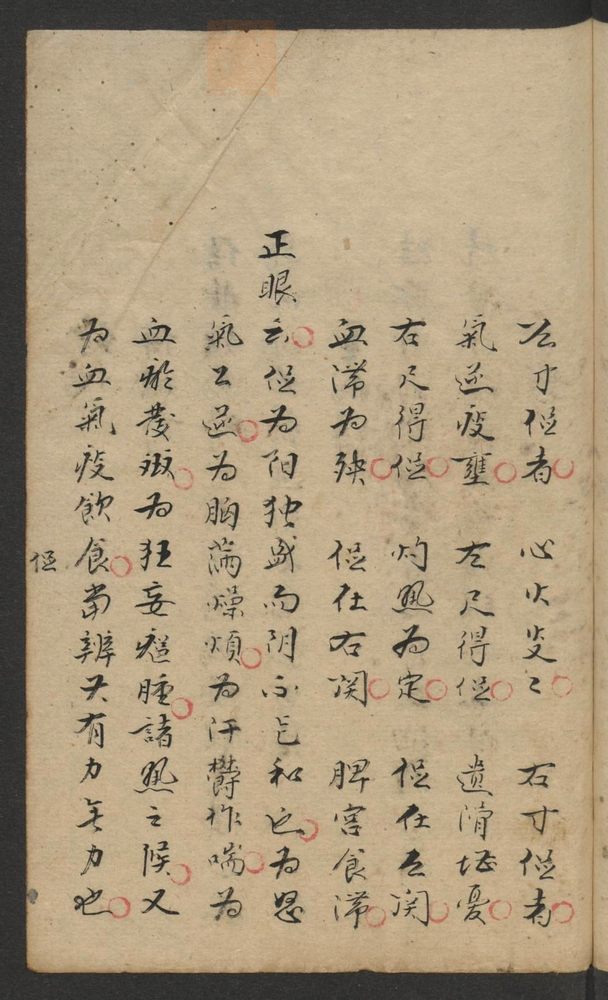 左寸促者 心火炎々 右寸促者
氣逆痰壅 左尺得促 遺滑堪憂
右尺得促 灼熱為定 促在左関
血滞為殃 促在右関 脾宮食滞
正眼云促為陽独盛而陰不能和也為怒
氣上逆為胸満燥煩為汗欝作喘為
血瘀發斑為狂妄瘟腫諸熱之候又
為血氣痰飲食當辨其有力無力也
促